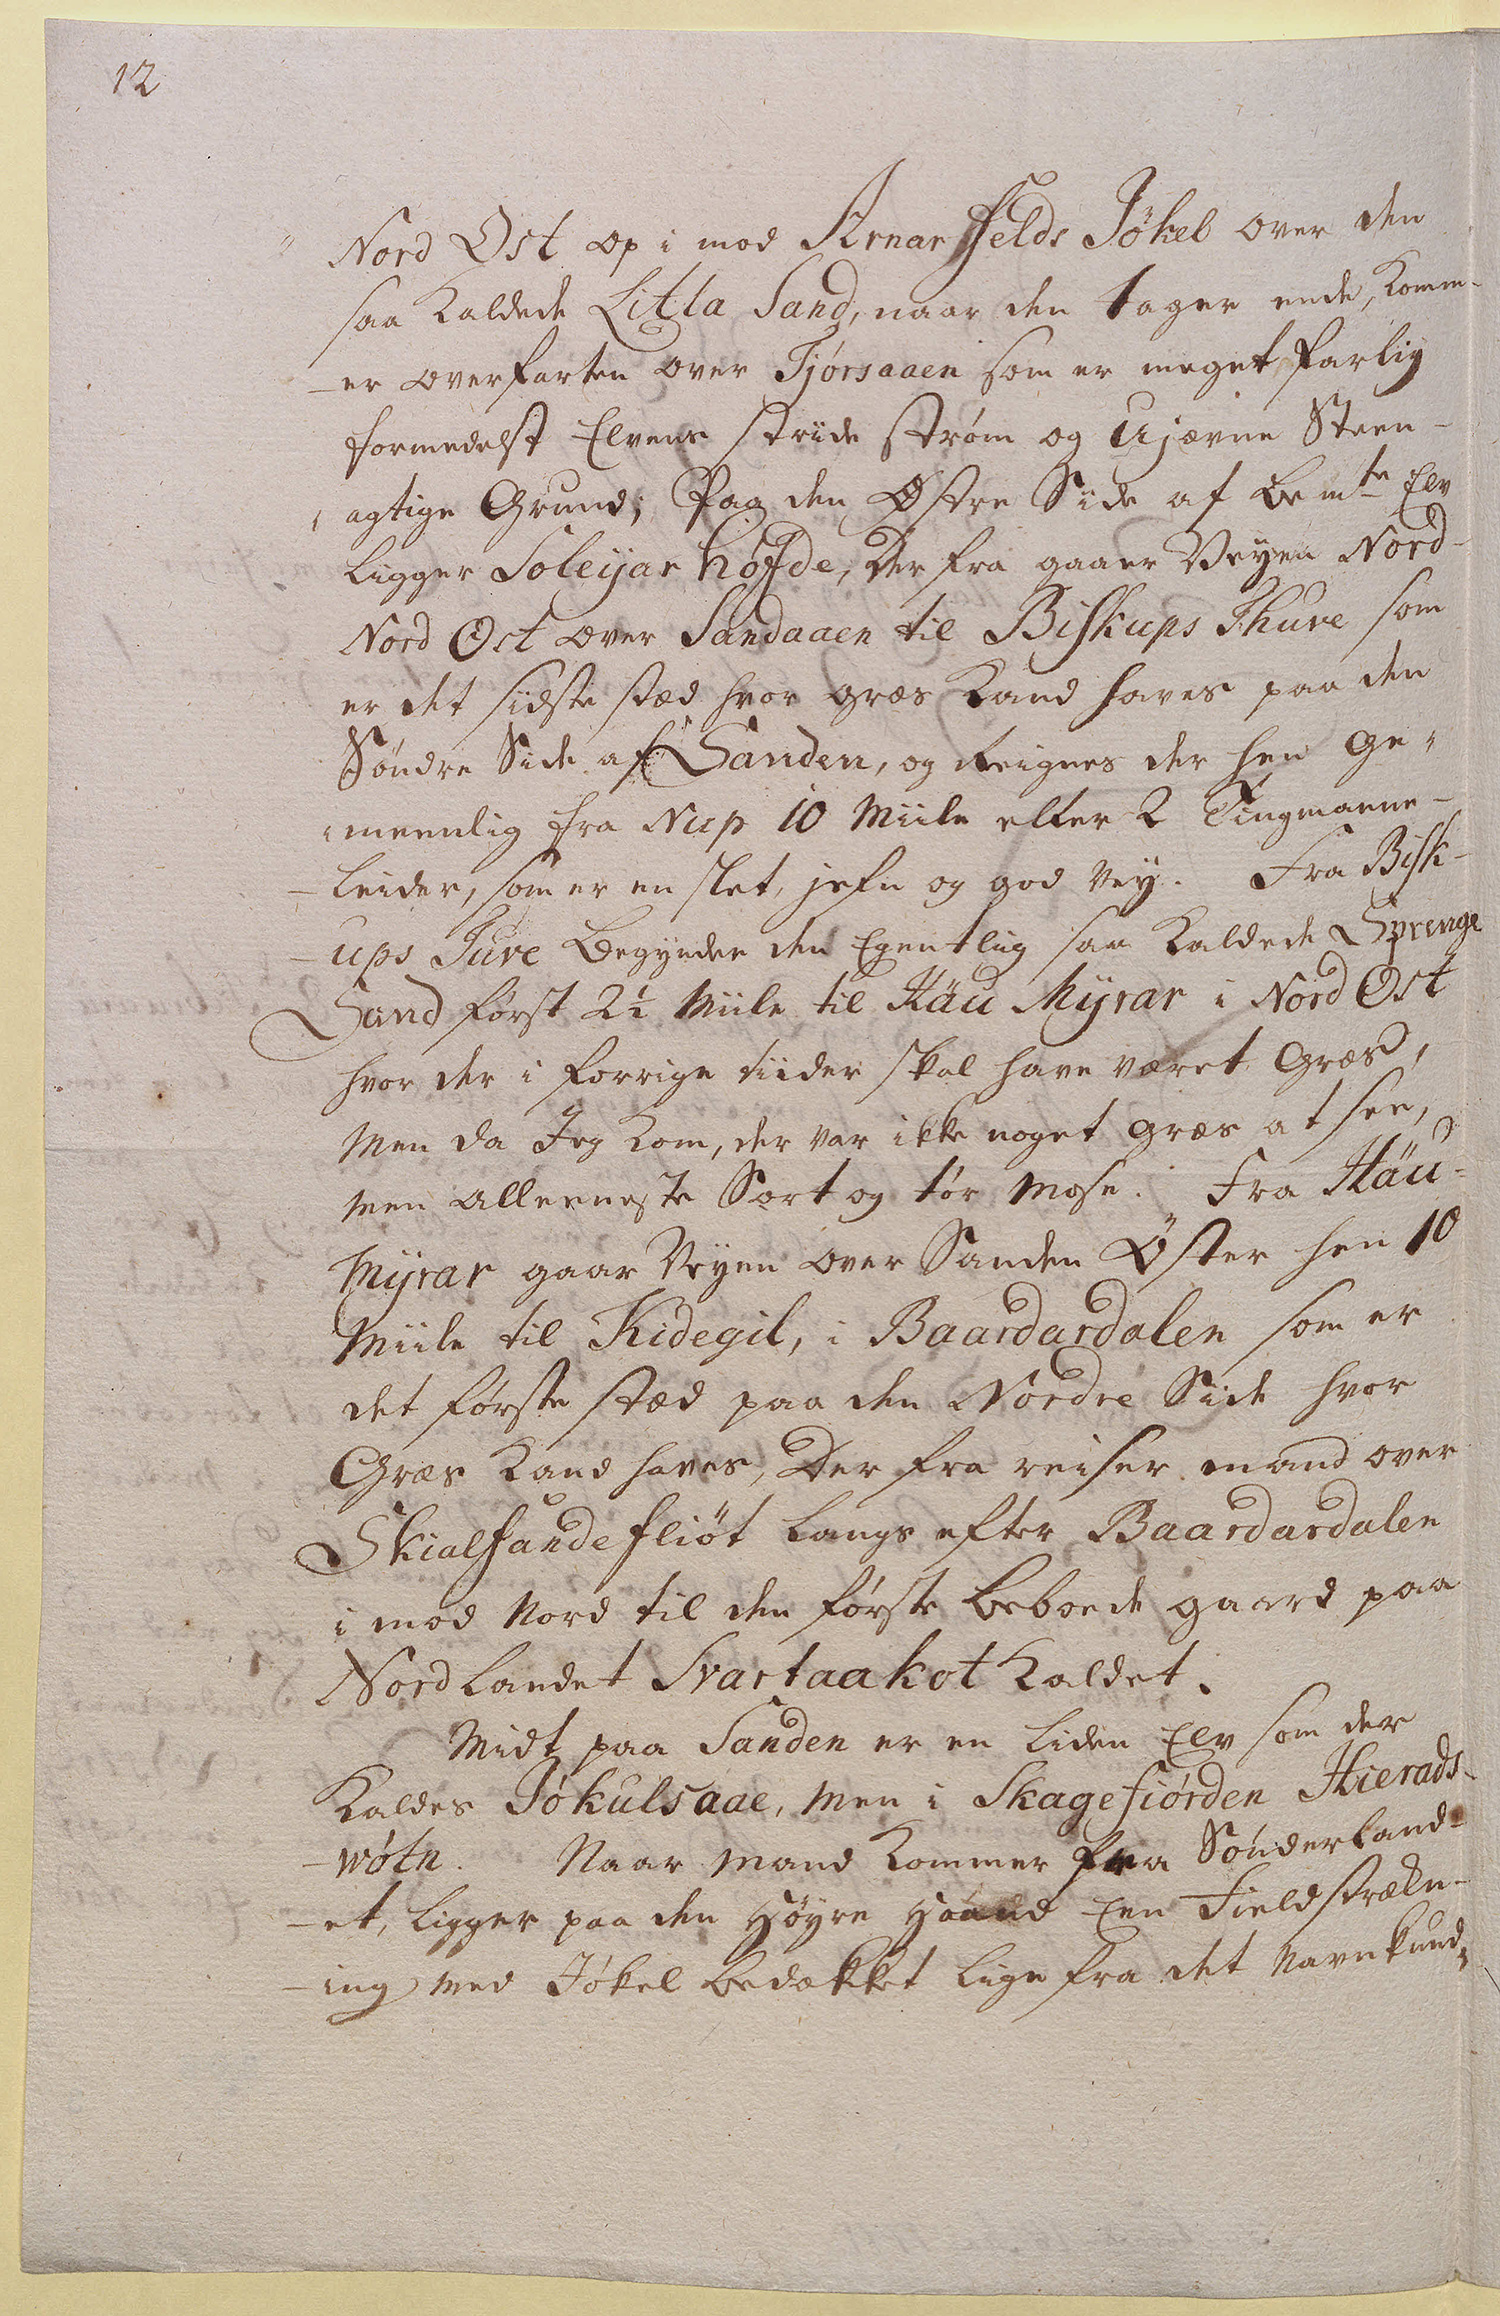 12
" Nord Ost op i mod Arnarfelds Jökel over den
saa Kaldede Litla Sand, naar den tager ende, Komm-
-er overfarten over Tjörsaaen som er meget farlig
formedelst Elvens striide strøm og Ujævne Steen-
agtige Grund; Paa den Østre Side af bemte Elv
ligger Soleyar höfde, Der fra gaaer Veyen Nord-
Nord Ost over Sandaaen til Biskups Thuve som
er det sidste stæd hvor græs Kand haves paa den
Søndre Side af Sanden, og Reignes der hen Ge-
meenlig fra Nup 10 Miile eller 2 Tingmanne-
-leider, som er en slet, jefn og god Vey. Fra Bisk-
-ups Tuve begynder den Egentlig saa Kaldede Sprenge
Sand først 2½ Miile til Häu Myrar i Nord Ost
hvor der i forrige tiider skal have været Græs,
Men da Jeg Kom, der var ikke noget græs at see,
men alleeneste Sort og tör Mose. Fra Häu-
Myrar gaar Veyen over Sanden Öster hen 10
Miile til Kidegil, i Baardardalen som er
det første stæd paa den Nordre Side hvor
Græs Kand haves, Der fra reiser mand over
Skialfande fliöt langs efter Baardardalen
i mod Nord til den første beboede gaard paa
Nordlandet Svartaakot Kaldet.
Midt paa Sanden er en liden Elv som der
Kaldes Jökulsaae, Men i Skagefiörden Hierads-
-wötn. Naar mand Kommer fra Sönderland-
-et, ligger paa den Høyre Haand Een Fieldstrækn-
-ing med Jökel bedækket lige fra det Navnkund-